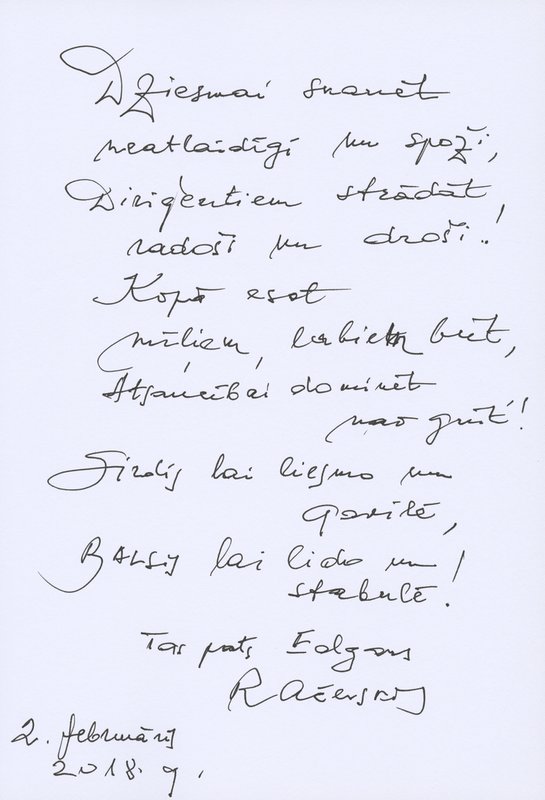 Dziesmai skanēt
neatlaidīgi un spoži,
Diriģentiem strādāt
radoši un droši..!
Kopā esot
mīļiem, labiem būt,
Atsaucībai dominēt
nav grūt'!
Sirdis lai liesmo un
gavilē,
BALSIS lai lido un
stabulē!
Tas pats Edgars
RAČEVSKIS
2. februāris
2018. g.